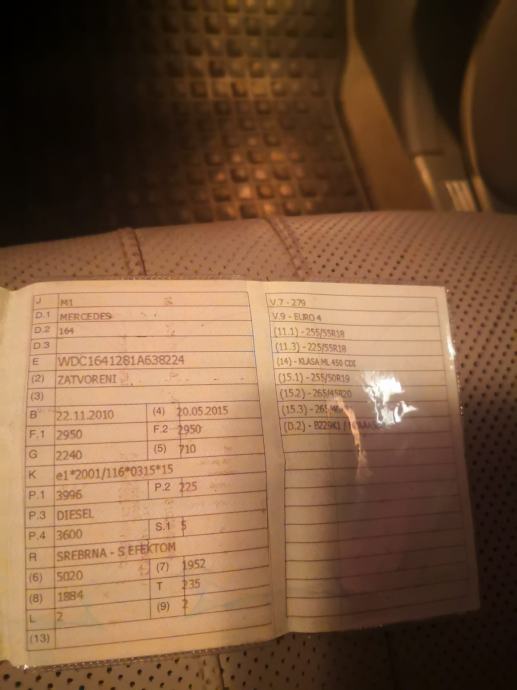 J M1
D.1 MERCEDES
D.2 164
D.3
E WDC1641281A638224
(2) ZATVORENI
(3)
B 22.11.2010 (4) 20.05.2015
F.1 2950 F.2 2950
G 2240 (5) 710
K e1*2001/116*0315*15
P.1 3996 P.2 225
P.3 DIESEL
P.4 3600 S.1 5
R SREBRNA - S EFEKTOM
(6) 5020 (7) 1952
(8) 1884 T 235
L 2 (9) 2
(13)
V.7 - 279
V.9 - EURO 4
(11.1) - 255/55R18
(11.3) - 225/55R18
(14) - KLASA ML 450 CDI
(15.1) - 255/50R19
(15.2) - 265/45R20
(15.3) -
(D.2) -